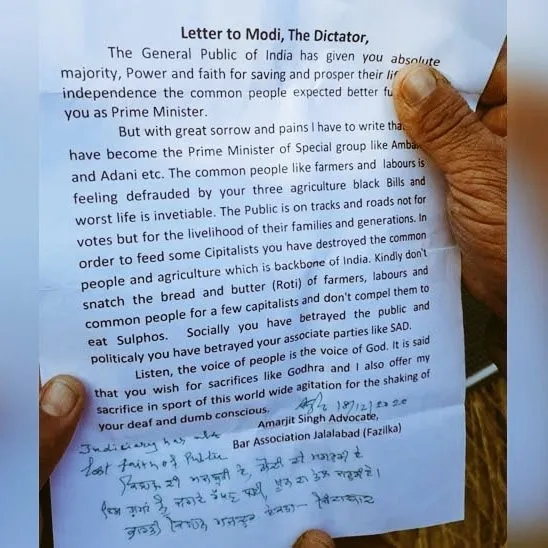 Letter to Modi, The Dictator,
The General Public of India has given you absolute
majority, Power and faith for saving and prosper their
independence the common people expected better
you as Prime Minister.
But with great sorrow and pains I have to write
have become the Prime Minister of Special group like
and Adani etc. The common people like farmers and labours is
feeling defrauded by your three agriculture black Bills and
worst life is invetiable. The Public is on tracks and roads not for
votes but for the livelihood of their families and generations. In
order to feed some Cipitalists you have destroyed the common
people and agriculture which is backbone of India. Kindly don't
snatch the bread and butter (Roti) of farmers, labours and
common people for a few capitalists and don't compel them to
eat Sulphos. Socially you have betrayed the public and
politicaly you have betrayed your associate parties like SAD.
Listen, the voice of people is the voice of God. It is said
that you wish for sacrifices like Godhra and I also offer my
sacrifice in sport of this world wide agitation for the shaking of
your deaf and dumb conscious.
18/12/2020
Amarjit Singh Advocate,
Bar Association Jalalabad (Fazilka)
Judiciary has also
lost faith of Public